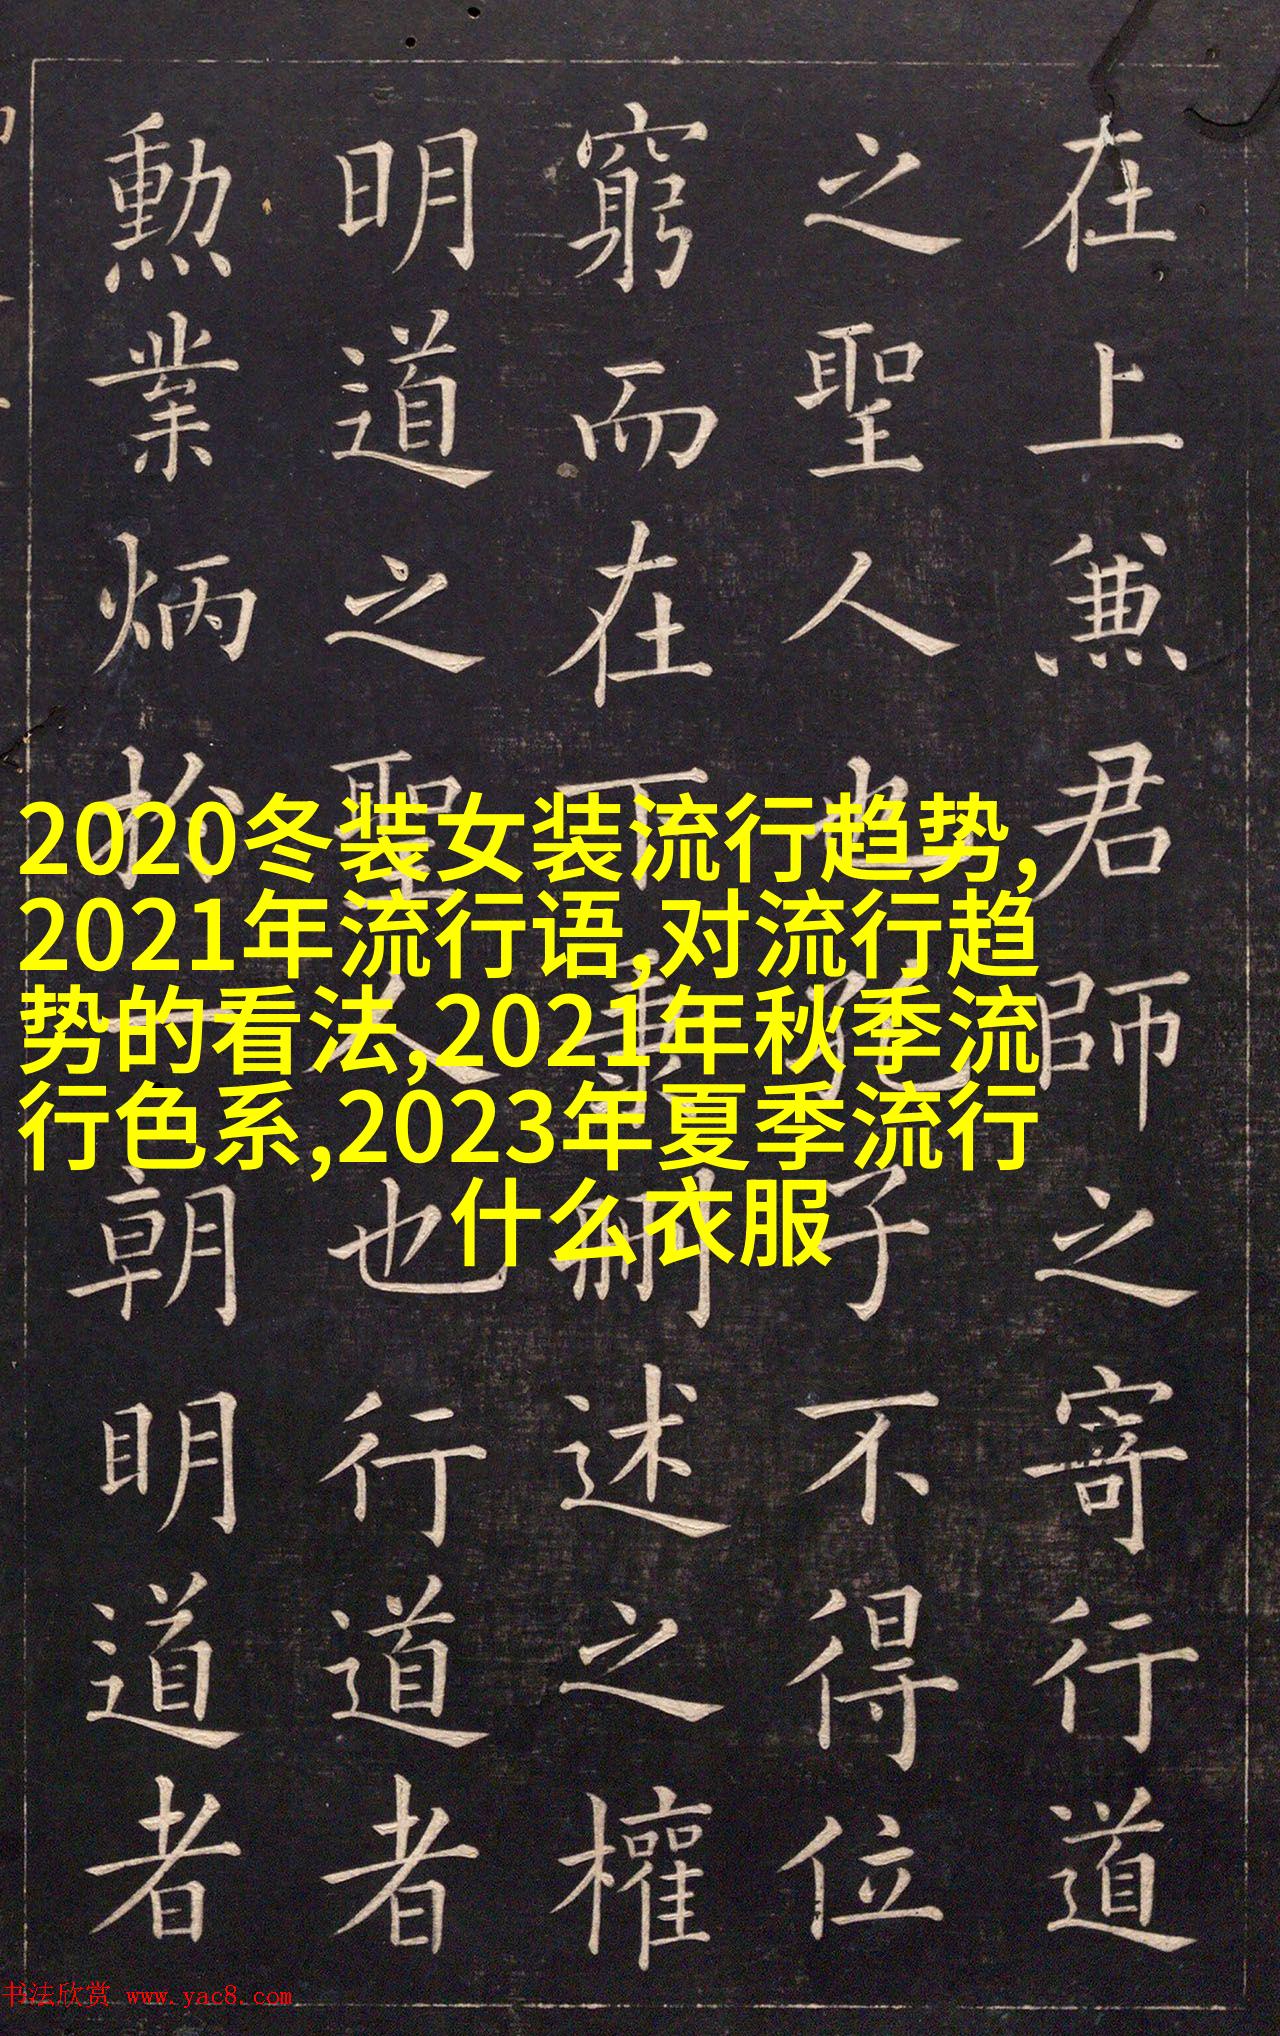 在上兼君師之寄行道
之聖人也孔子不得位
窮而在下秉刪述之權
明道之聖人也行道者
勳業炳扵一朝明道者
2020冬装女装流行趋势,
2021年流行语,对流行趋
势的看法,2021年秋季流
行色系,2023年夏季流行
什么衣服
书法欣赏 www.yac8.com